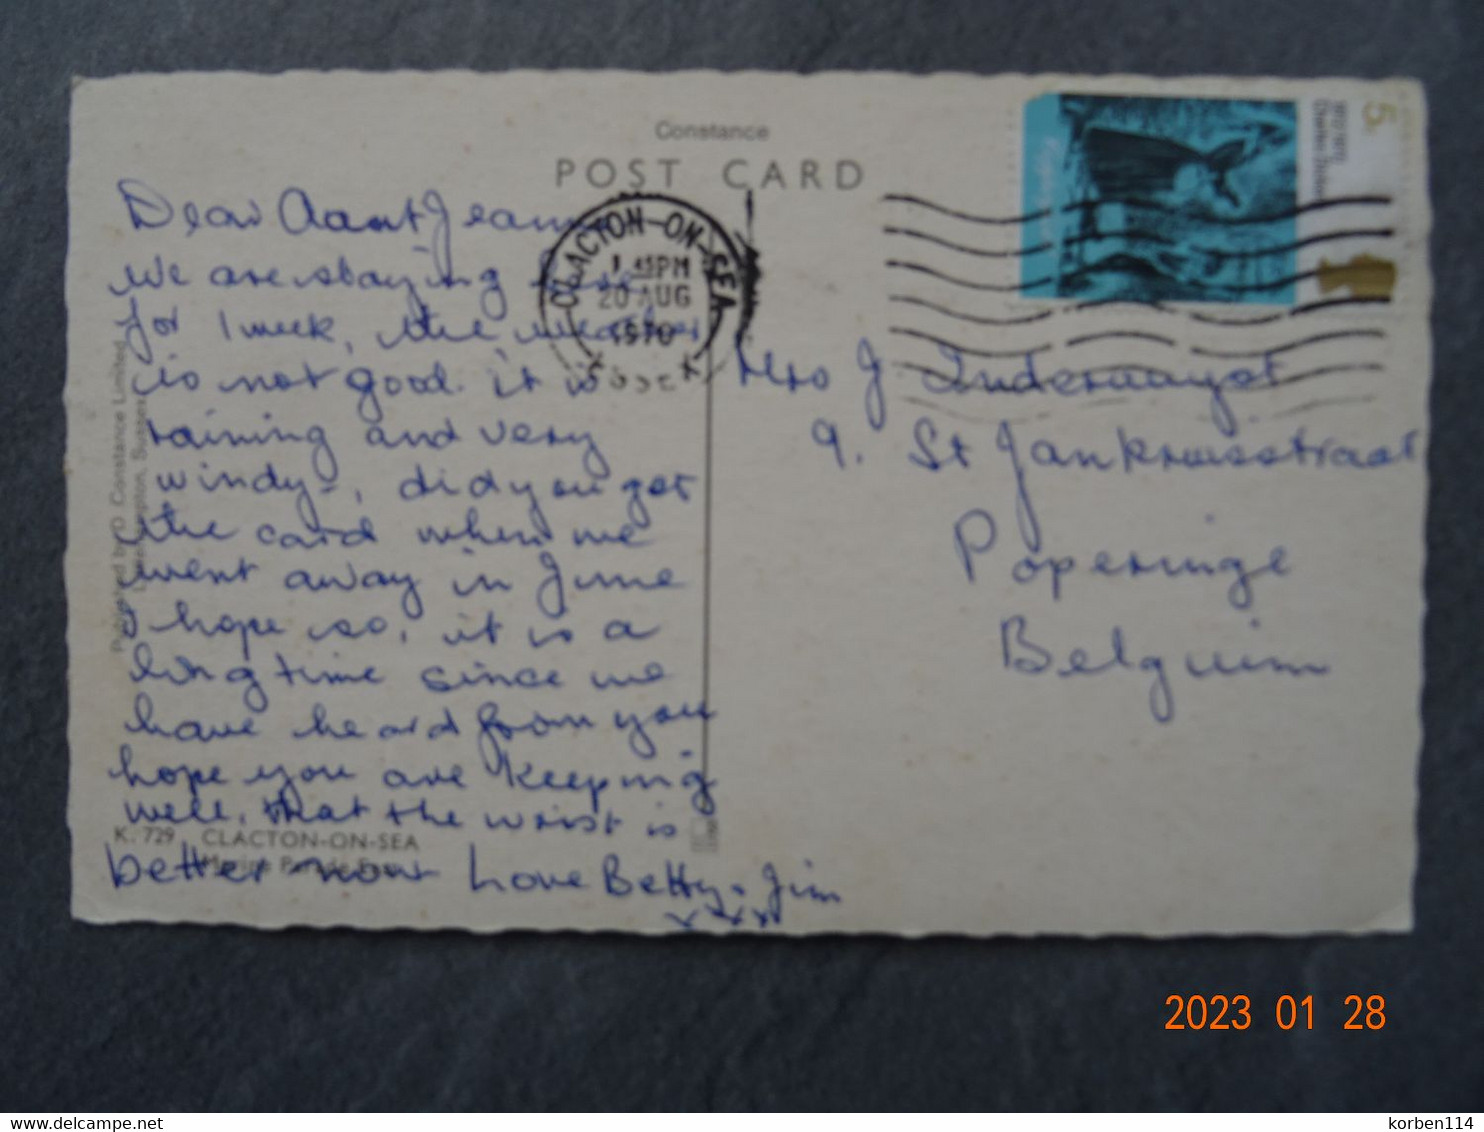 Constance
POST CARD
Dear Aant Jean
We are staying
for 1 week, the weather
is not good it is
raining and very
windy, did you get
the card when we
went away in June
I hope so, it is a
long time since we
have heard from you
hope you are keeping
well, that the wrist is
better now Love Betty. Jim
xxxx
CLACTON-ON-SEA
1 45PM
20 AUG
1970
ESSEX
5
Mrs J Indermayet
9. St Jankruisstraat
Poperinge
Belguim
Published by D. Constance Limited
Littlehampton, Sussex
K. 729 CLACTON-ON-SEA
Marine Parade East
2023 01 28
delcampe.net
korben114